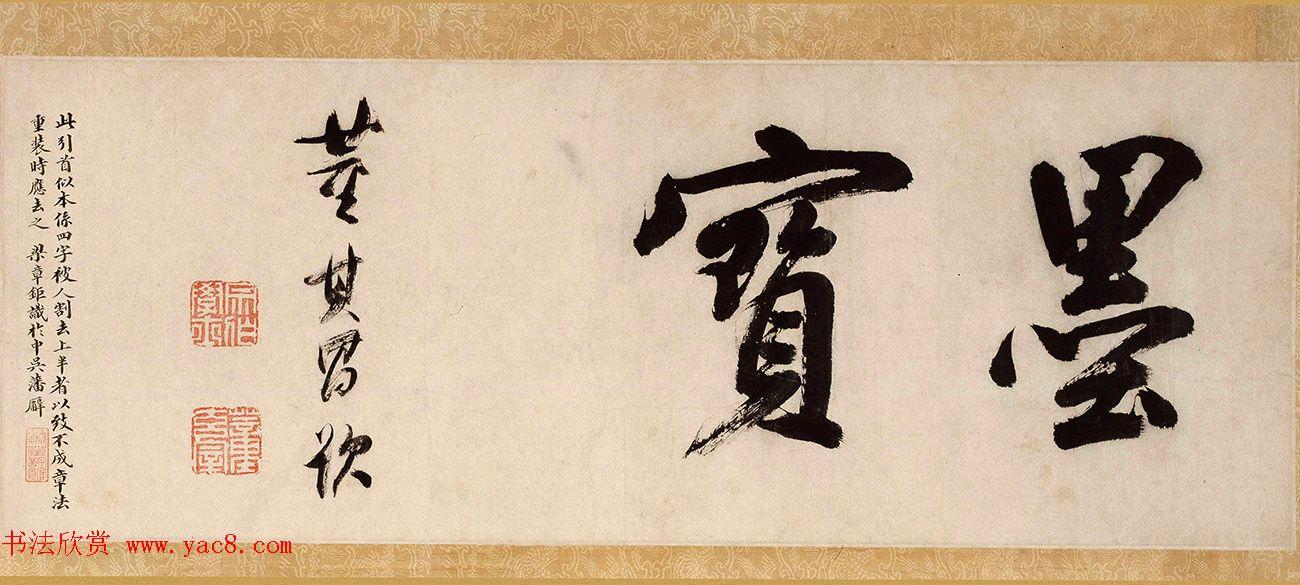 墨寶
董其昌
此引首似本係四字被人割去上半者以致不成章法
重裝時應去之 梁章鉅識於中吳藩廨
书法欣赏 www.yac8.com